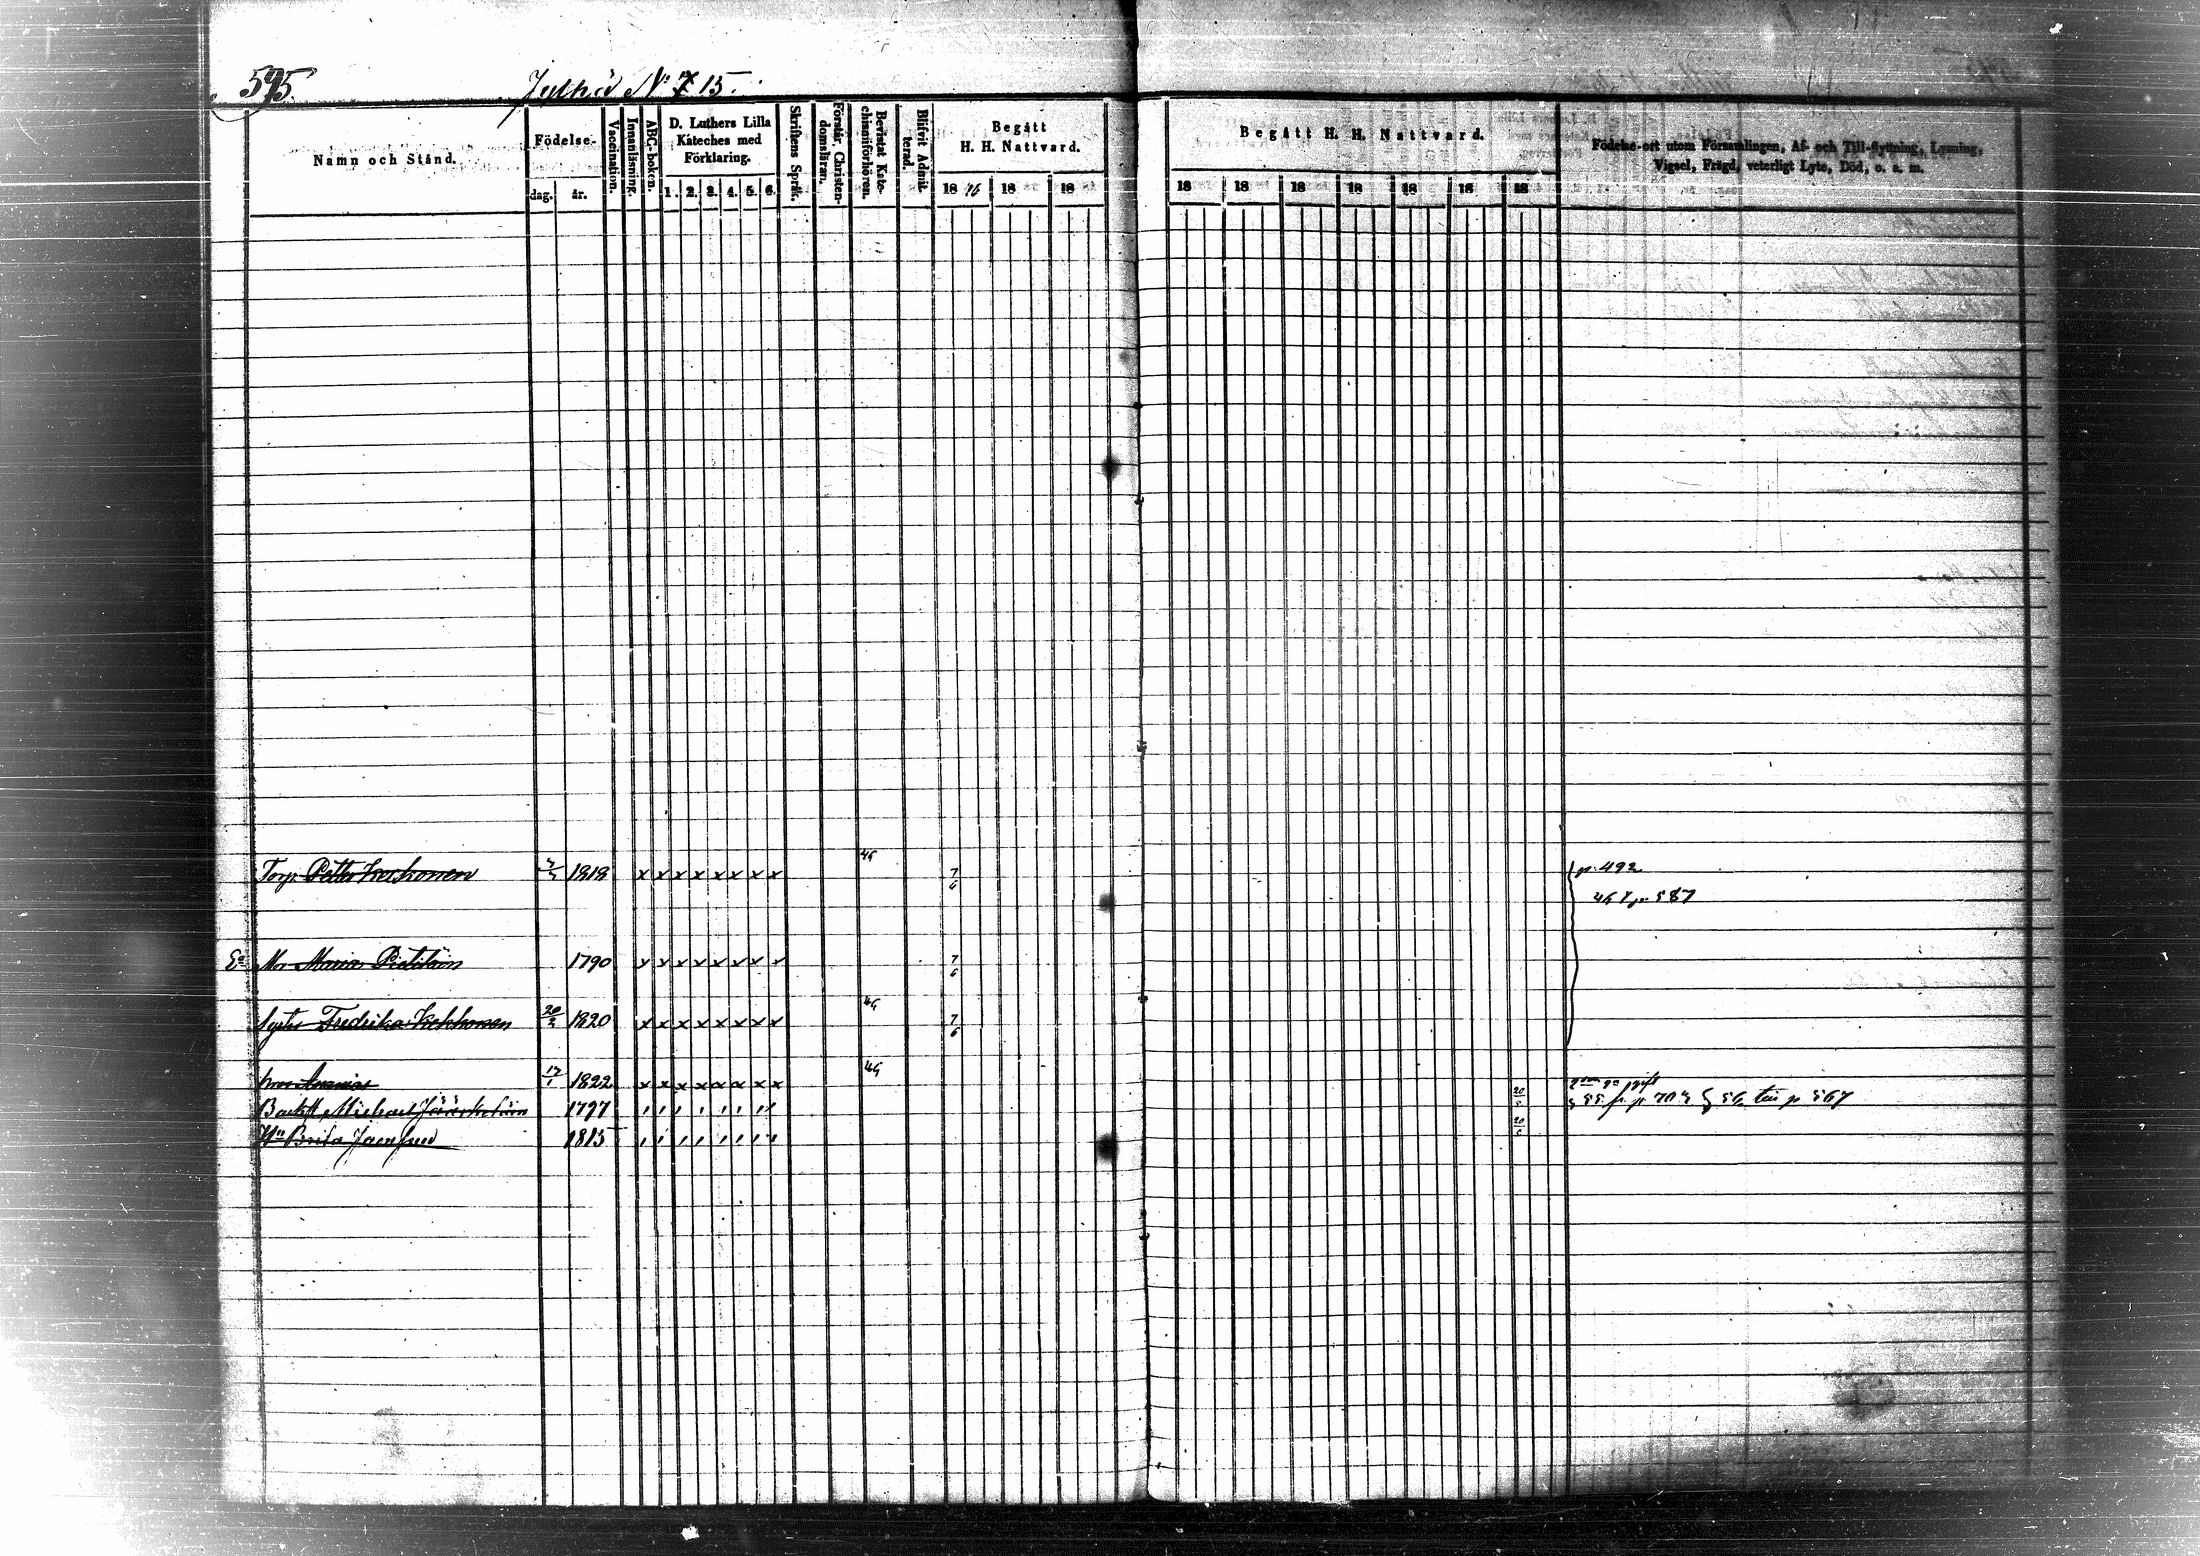 595.
Jylhä N:o 7 15.
Namn och Stånd.
Födelse-
dag. år.
Vaccination.
Innanläsning.
ABC-boken.
D. Luthers Lilla
Kateches med
Förklaring.
1. 2. 3. 4. 5. 6.
Skriftens Språk.
Förstår Christen-
domsläran.
Bevistat Kate-
chismiförhören.
Blifvit Admit-
terad.
Begått
H. H. Nattvard.
18 46 18 18
Begått H. H. Nattvard.
18 18 18 18 18 18 18
Födelse-ort utom Församlingen, Af- och Till-flyttning, Lysning,
Vigsel, Frägd, veterligt Lyte, Död, o. s. m.
Torp. Petter Kekkonen 1818 x x x x x x x x 46 7/6 p. 492
46 p. 587
Ea Mor Maria Pietiläin 1790 x x x x x x x x 7/6
Syster Fredrika Kekkonen 20/2 1820 x x x x x x x x 46 7/6
Ananias 17/1 1822 x x x x x x x x 46
Michael Jääskeläin 1797 20/5 55 fr. p. 703 56 p 567
Hu Brita 1815 20/5